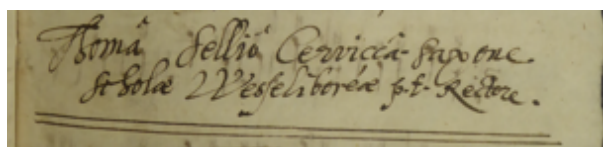 Thomâ Selliô Cerviceâ-Saxone.
Scholæ Wesseliboreæ p.t. Rectore.